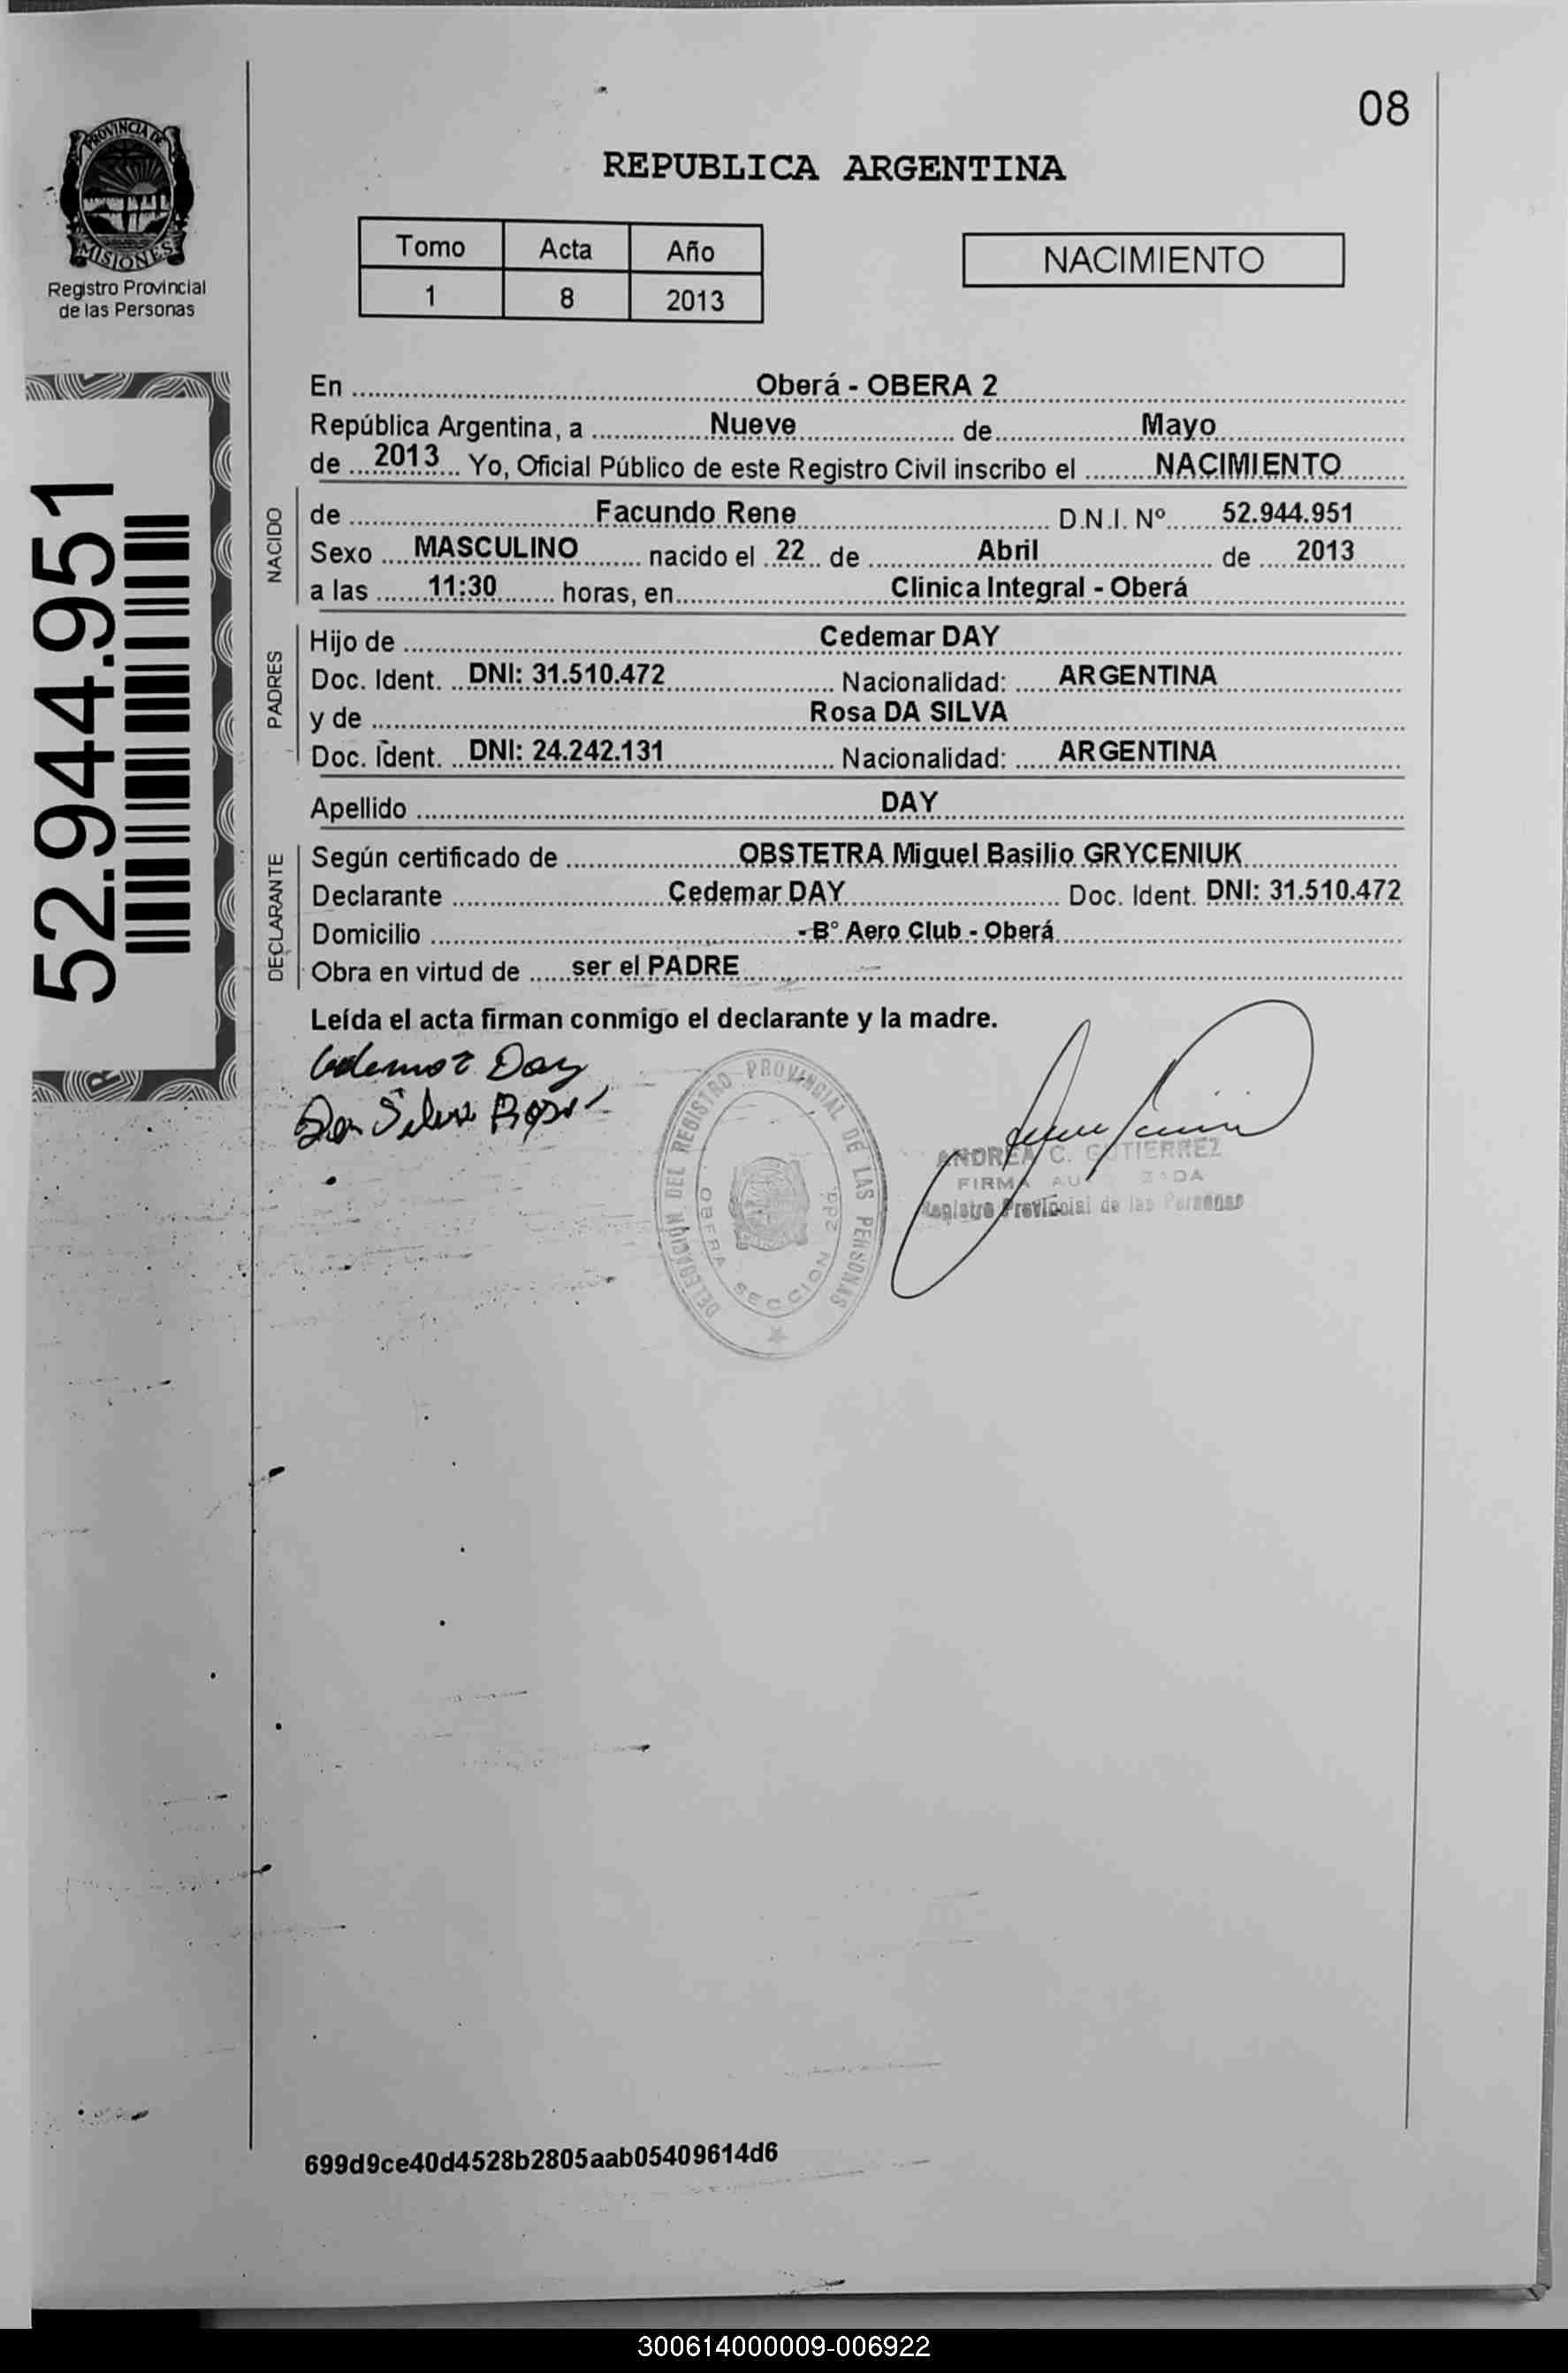 08
PROVINCIA DE
MISIONES
Registro Provincial
de las Personas
REPUBLICA ARGENTINA
Tomo Acta Año
1 8 2013
NACIMIENTO
52.944.951
En Oberá - OBERA 2
República Argentina, a Nueve de Mayo
de 2013 Yo, Oficial Público de este Registro Civil inscribo el NACIMIENTO
NACIDO
de Facundo Rene D.N.I. Nº 52.944.951
Sexo MASCULINO nacido el 22 de Abril de 2013
a las 11:30 horas, en Clinica Integral - Oberá
PADRES
Hijo de Cedemar DAY
Doc. Ident. DNI: 31.510.472 Nacionalidad: ARGENTINA
y de Rosa DA SILVA
Doc. Ident. DNI: 24.242.131 Nacionalidad: ARGENTINA
Apellido DAY
DECLARANTE
Según certificado de OBSTETRA Miguel Basilio GRYCENIUK
Declarante Cedemar DAY Doc. Ident. DNI: 31.510.472
Domicilio - B° Aero Club - Oberá
Obra en virtud de ser el PADRE
Leída el acta firman conmigo el declarante y la madre.
Cedemar Day
Da Silva Rosa
DELEGACIÓN DEL REGISTRO PROVINCIAL DE LAS PERSONAS
OBERA SECCION 2da.
ANDREA C. GUTIERREZ
FIRMA
Registro Provincial de las Personas
699d9ce40d4528b2805aab05409614d6
300614000009-006922